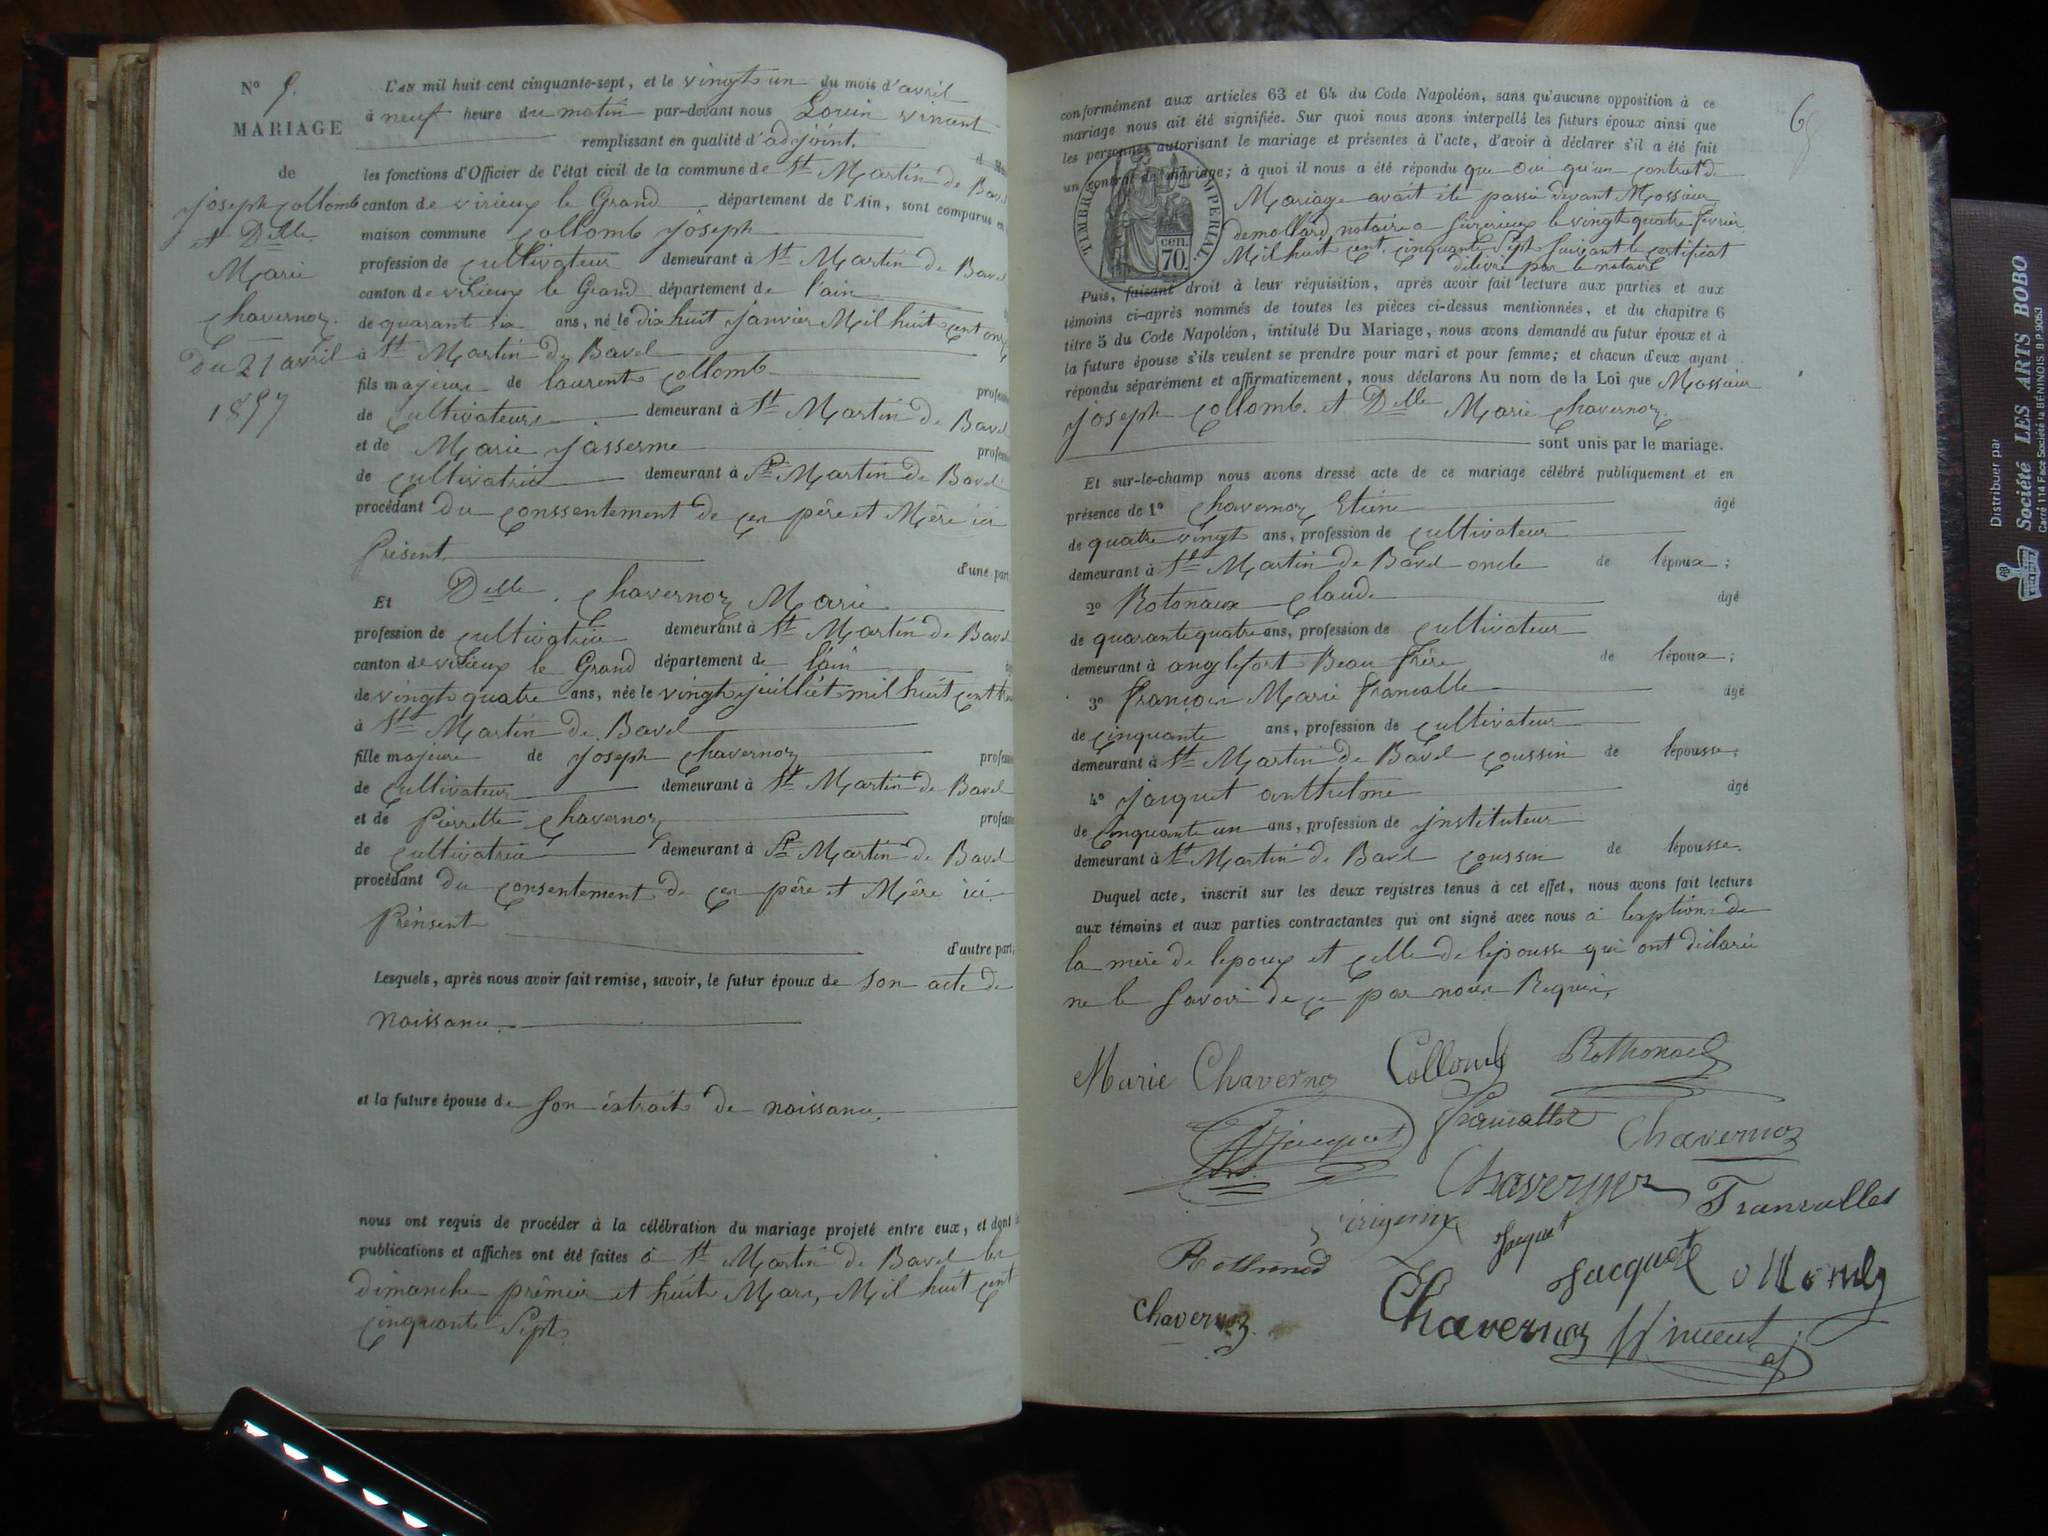 N° 5.
MARIAGE
de
joseph collomb
et Delle
Marie
chavernoz.
du 21 avril
1857
L'AN mil huit cent cinquante-sept, et le vingt un du mois d'avril
à neuf heure du matin par-devant nous Louin vincent
remplissant en qualité d'adjoint.
les fonctions d'Officier de l'état civil de la commune de St Martin de Bavel
canton de virieux le Grand département de l'Ain, sont comparus en
maison commune collomb joseph
profession de cultivateur demeurant à St Martin de Bavel
canton de virieux le Grand département de l'ain
de quarante six ans, né le dix huit janvier Mil huit cent onze
à St Martin de Bavel
fils majeur de laurent collomb
de cultivateur demeurant à St Martin de Bavel
et de Marie jasserme
de cultivatrice demeurant à St Martin de Bavel
procédant du conssentement de çes père et Mère ici
Présent
d'une part
Et Delle chavernoz Marie
profession de cultivatrice demeurant à St Martin de Bavel
canton de virieux le Grand département de l'ain
de vingt quatre ans, née le vingt juilliet mil huit cent
à St Martin de Bavel
fille majeure de joseph chavernoz
de cultivateur demeurant à St Martin de Bavel
et de Pierrette chavernoz
de cultivatrice demeurant à St Martin de Bavel
procédant du consentement de çes père et Mère ici
Présent
d'autre part;
Lesquels, après nous avoir fait remise, savoir, le futur époux de son acte de
naissance.
et la future épouse de son extrait de naissance.
nous ont requis de procéder à la célébration du mariage projeté entre eux, et dont
publications et affiches ont été faites à St Martin de Bavel les
dimanche premier et huit Mars, Mil huit cent
cinquante Sept.
6
conformément aux articles 63 et 64 du Code Napoléon, sans qu'aucune opposition à ce
mariage nous ait été signifiée. Sur quoi nous avons interpellé les futurs époux ainsi que
les personnes autorisant le mariage et présentes à l'acte, d'avoir à déclarer s'il a été fait
un contrat de mariage; à quoi il nous a été répondu que oui qu'un contrat de
Mariage avait été passé devant Mossieur
demollard notaire a seizerieux le vingt quatre février
Mil huit cent cinquante Sept suivant le certificat
délivré par le notaire
TIMBRE IMPERIAL
70 cen.
Puis, faisant droit à leur réquisition, après avoir fait lecture aux parties et aux
témoins ci-après nommés de toutes les pièces ci-dessus mentionnées, et du chapitre 6
titre 5 du Code Napoléon, intitulé Du Mariage, nous avons demandé au futur époux et à
la future épouse s'ils veulent se prendre pour mari et pour femme; et chacun d'eux ayant
répondu séparément et affirmativement, nous déclarons Au nom de la Loi que Mossieur
joseph collomb. et Delle Marie chavernoz.
sont unis par le mariage.
Et sur-le-champ nous avons dressé acte de ce mariage célébré publiquement et en
présence de 1° chavernoz Etiene âgé
de quatre vingt ans, profession de cultivateur
demeurant à St Martin de Bavel oncle de lépoux;
2° Rotonaux Claude âgé
de quarante quatre ans, profession de cultivateur
demeurant à anglefort Beau frère de lépoux;
3° françois Marie francalle âgé
de cinquante ans, profession de cultivateur
demeurant à St Martin de Bavel coussin de lépousse;
4° jacquet anthelme âgé
de cinquante un ans, profession de jnstituteur
demeurant à St Martin de Bavel coussin de lépousse.
Duquel acte, inscrit sur les deux registres tenus à cet effet, nous avons fait lecture
aux témoins et aux parties contractantes qui ont signé avec nous à leaption de
la mère de lepoux et celle de lépousse qui ont déclaré
ne le savoir de çe par nous Requis,
Marie Chavernoz Collomb Rothonod
Jacquet Chavernoz
Chavernoz Francalles
Jacquet
Rothonod Jacquet Collomb
Chavernoz Chavernoz Vincent
Distribuer par
Société LES ARTS BOBO
Carré 114 Face Société la BÉNINOIS. B P 9053